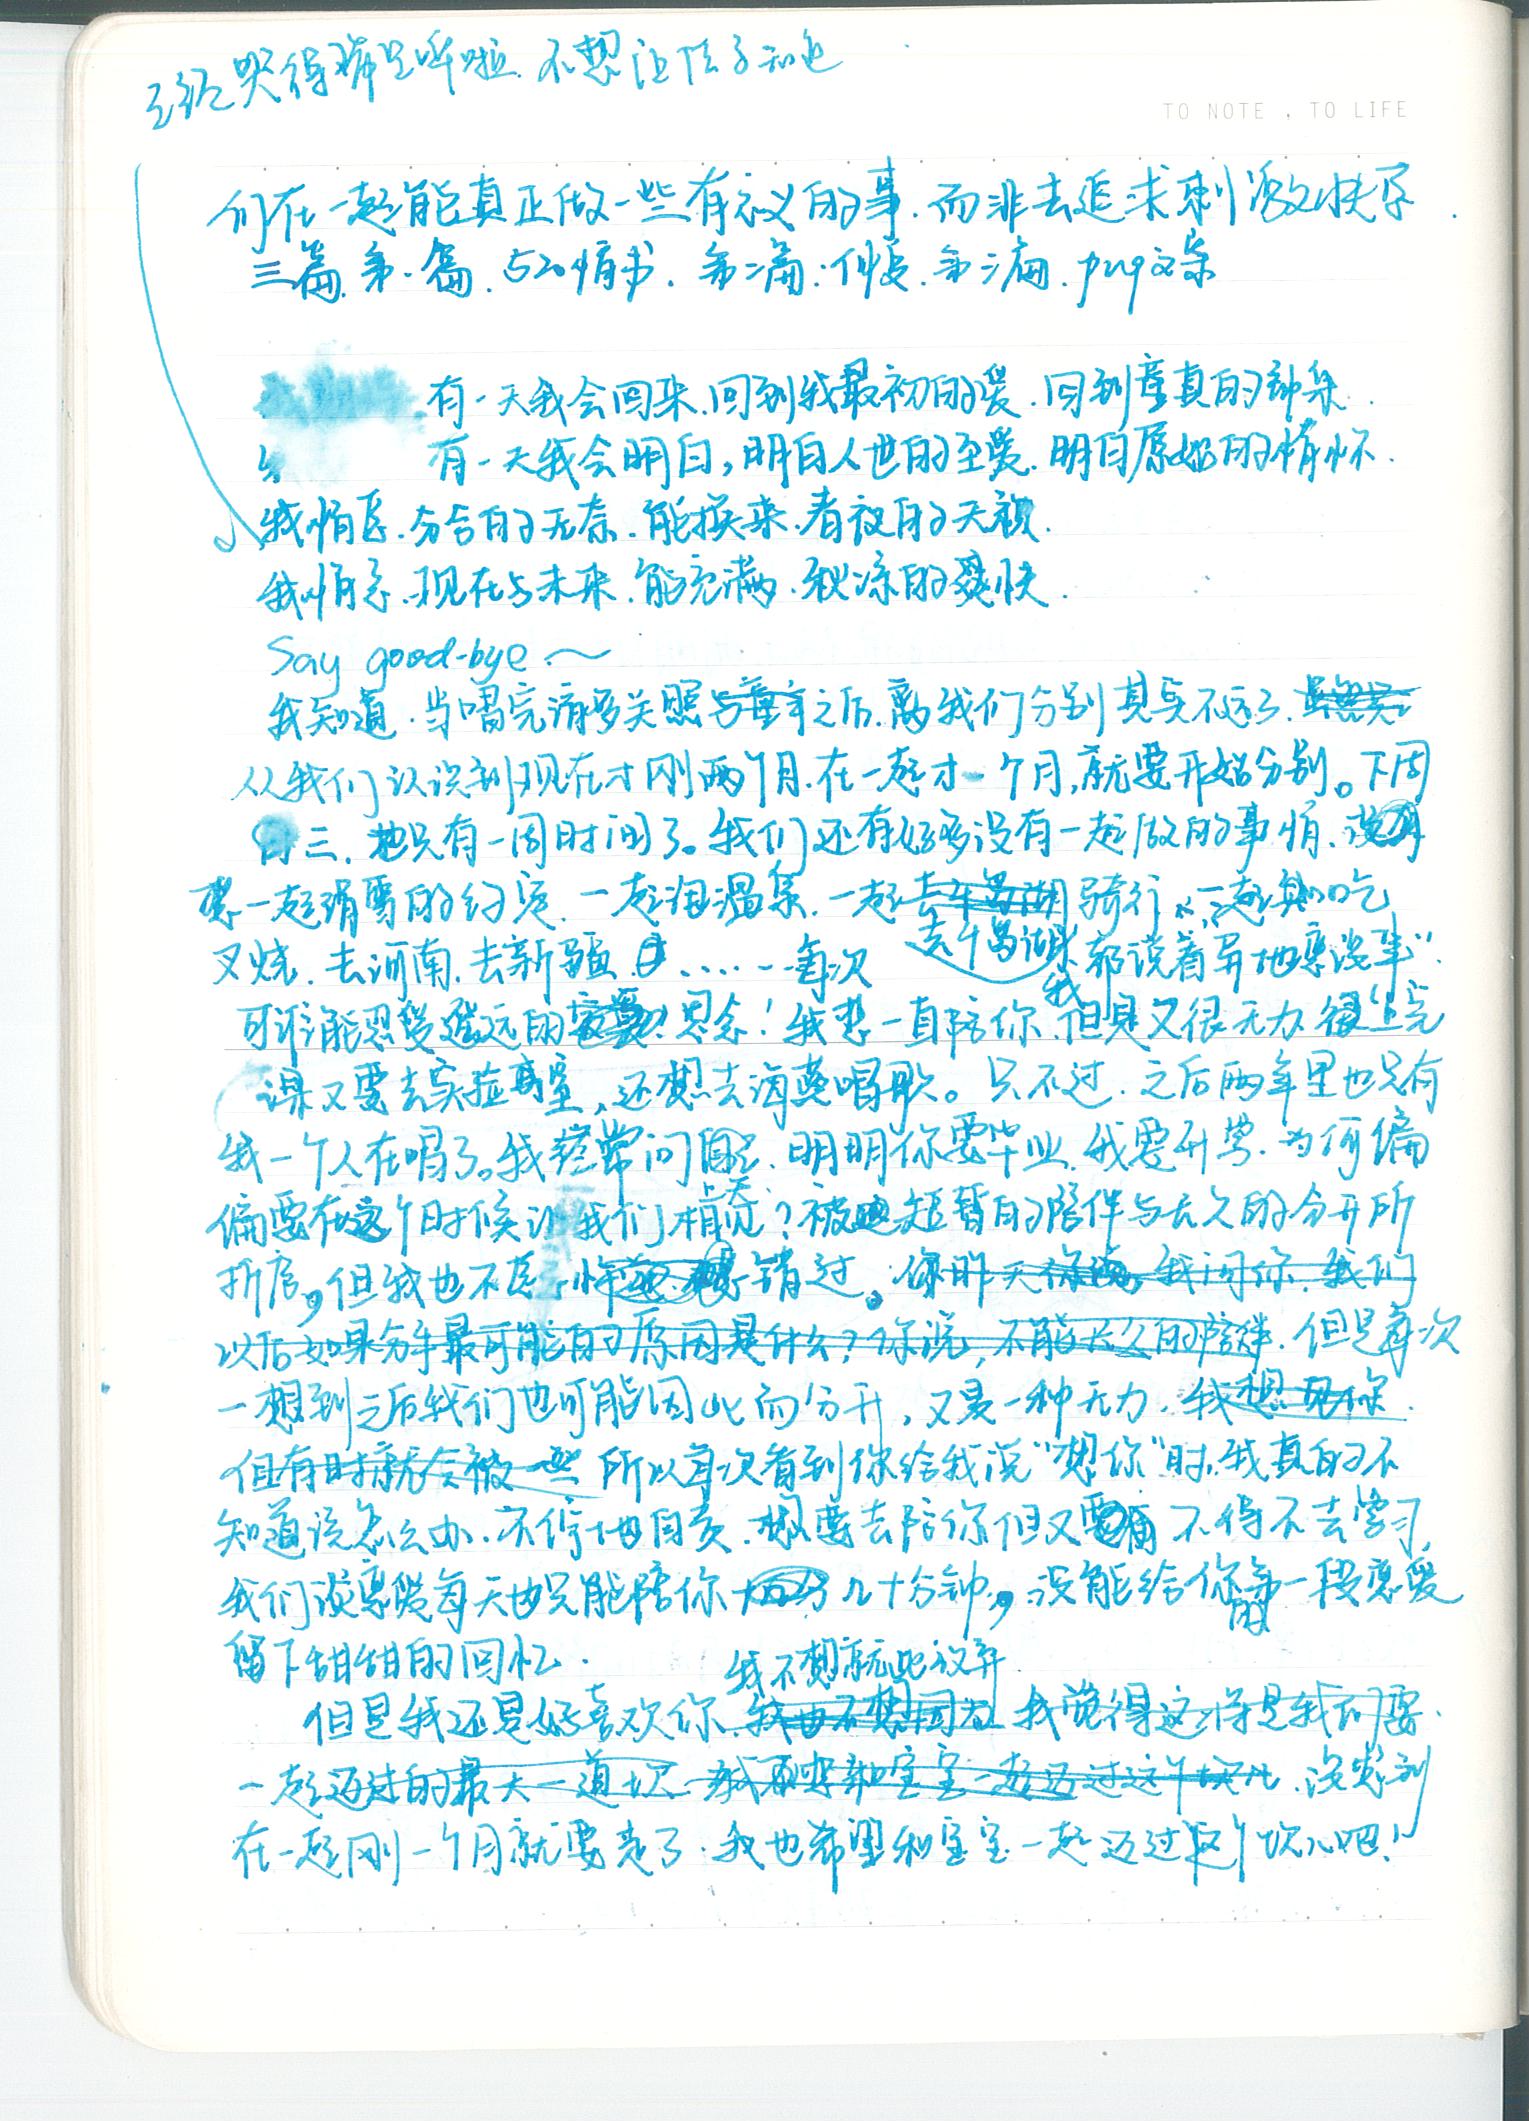 已经哭得稀里哗啦.不想让
TO NOTE , TO LIFE
们在一起能真正做一些有意义的事.而非去追求刺激快乐.
三篇.第一篇.520情书.第二篇:.第三篇.文案
有一天我会回来.回到我最初的爱.回到童真的神采.
有一天我会明白,明白人世的至爱.明白原始的情怀.
我情愿.分合的无奈.能换来.春夜的天籁.
我情愿.现在与未来.能充满.秋凉的爽快.
Say good-bye.~
我知道.当唱完请多关照与童年之后.离我们分别其实不远了.
从我们认识到现在才刚两个月.在一起才一个月,就要开始分别。下周
三.也只有一周时间了。我们还有好多没有一起做的事情.没有
一起滑雪的约定.一起泡温泉.一起去千岛湖骑行.一起吃
叉烧.去河南.去新疆.……每次 去千岛湖 我都说着异地恋没事"
可谁能忍受遥远的思念!我想一直陪你.但是又很无力.上完
课又要去实验室,还想去海葵唱歌。只不过.之后两年里也只有
我一个人在唱了。我经常问自己.明明你要毕业.我要升学.为何偏
上天
偏要在这个时候让我们相见?被短暂的陪伴与长久的分开所
折磨。但我也不愿错过。你昨天 我问你.我们
以后如果分手最可能的原因是什么?你说,不能长久的陪伴.但是每次
一想到之后我们也可能因此而分开,又是一种无力.我想见你.
但有时就会被一些 所以每次看到你给我说"想你"时.我真的不
知道该怎么办.不停地自责.想要去陪你但又不得不去学习.
我们谈恋爱每天也只能陪你几十分钟。没能给你的第一段恋爱
留下甜甜的回忆.
我不想就此放弃
但是我还是好喜欢你.我也不想因为 我觉得这将是我们要
一起迈过的最大一道坎.和宝宝一起迈过这个坎儿.没想到
在一起刚一个月就要走了.我也希望和宝宝一起迈过这个坎儿吧!